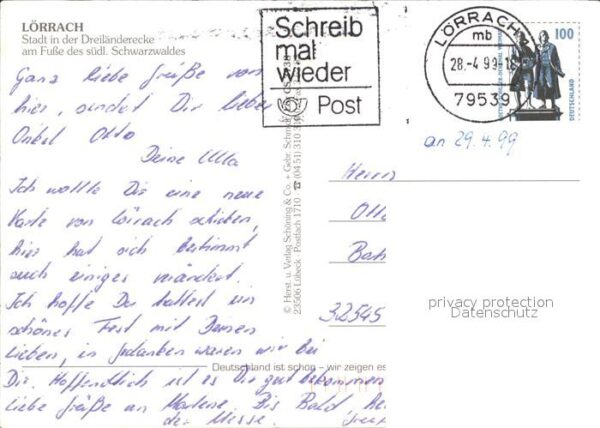 LÖRRACH
Stadt in der Dreiländerecke
am Fuße des südl. Schwarzwaldes
Ganz liebe Grüße von
hier, sendet Dir lieber
Onkel Otto
Deine Ulla
Ich wollte Dir eine neue
Karte von Lörrach schicken,
hier hat sich bestimmt
auch einiges verändert.
Ich hoffe Du hattest ein
schönes Fest mit Deinen
Lieben, in Gedanken waren wir bei
Dir. Hoffentlich ist es Dir gut bekommen
Liebe Grüße an Marlene. Bis Bald,
der Messe.
Deutschland ist schön - wir zeigen es
© Herst. u. Verlag Schöning & Co. + Gebr. Schmidt
23506 Lübeck · Postfach 1710 · ☎ (04 51) 310 31
Schreib
mal
wieder
Post
LÖRRACH
mb
28.-4.99-18
79539
100
DEUTSCHLAND
an 29.4.99
Herrn
Otto
32545
privacy protection
Datenschutz